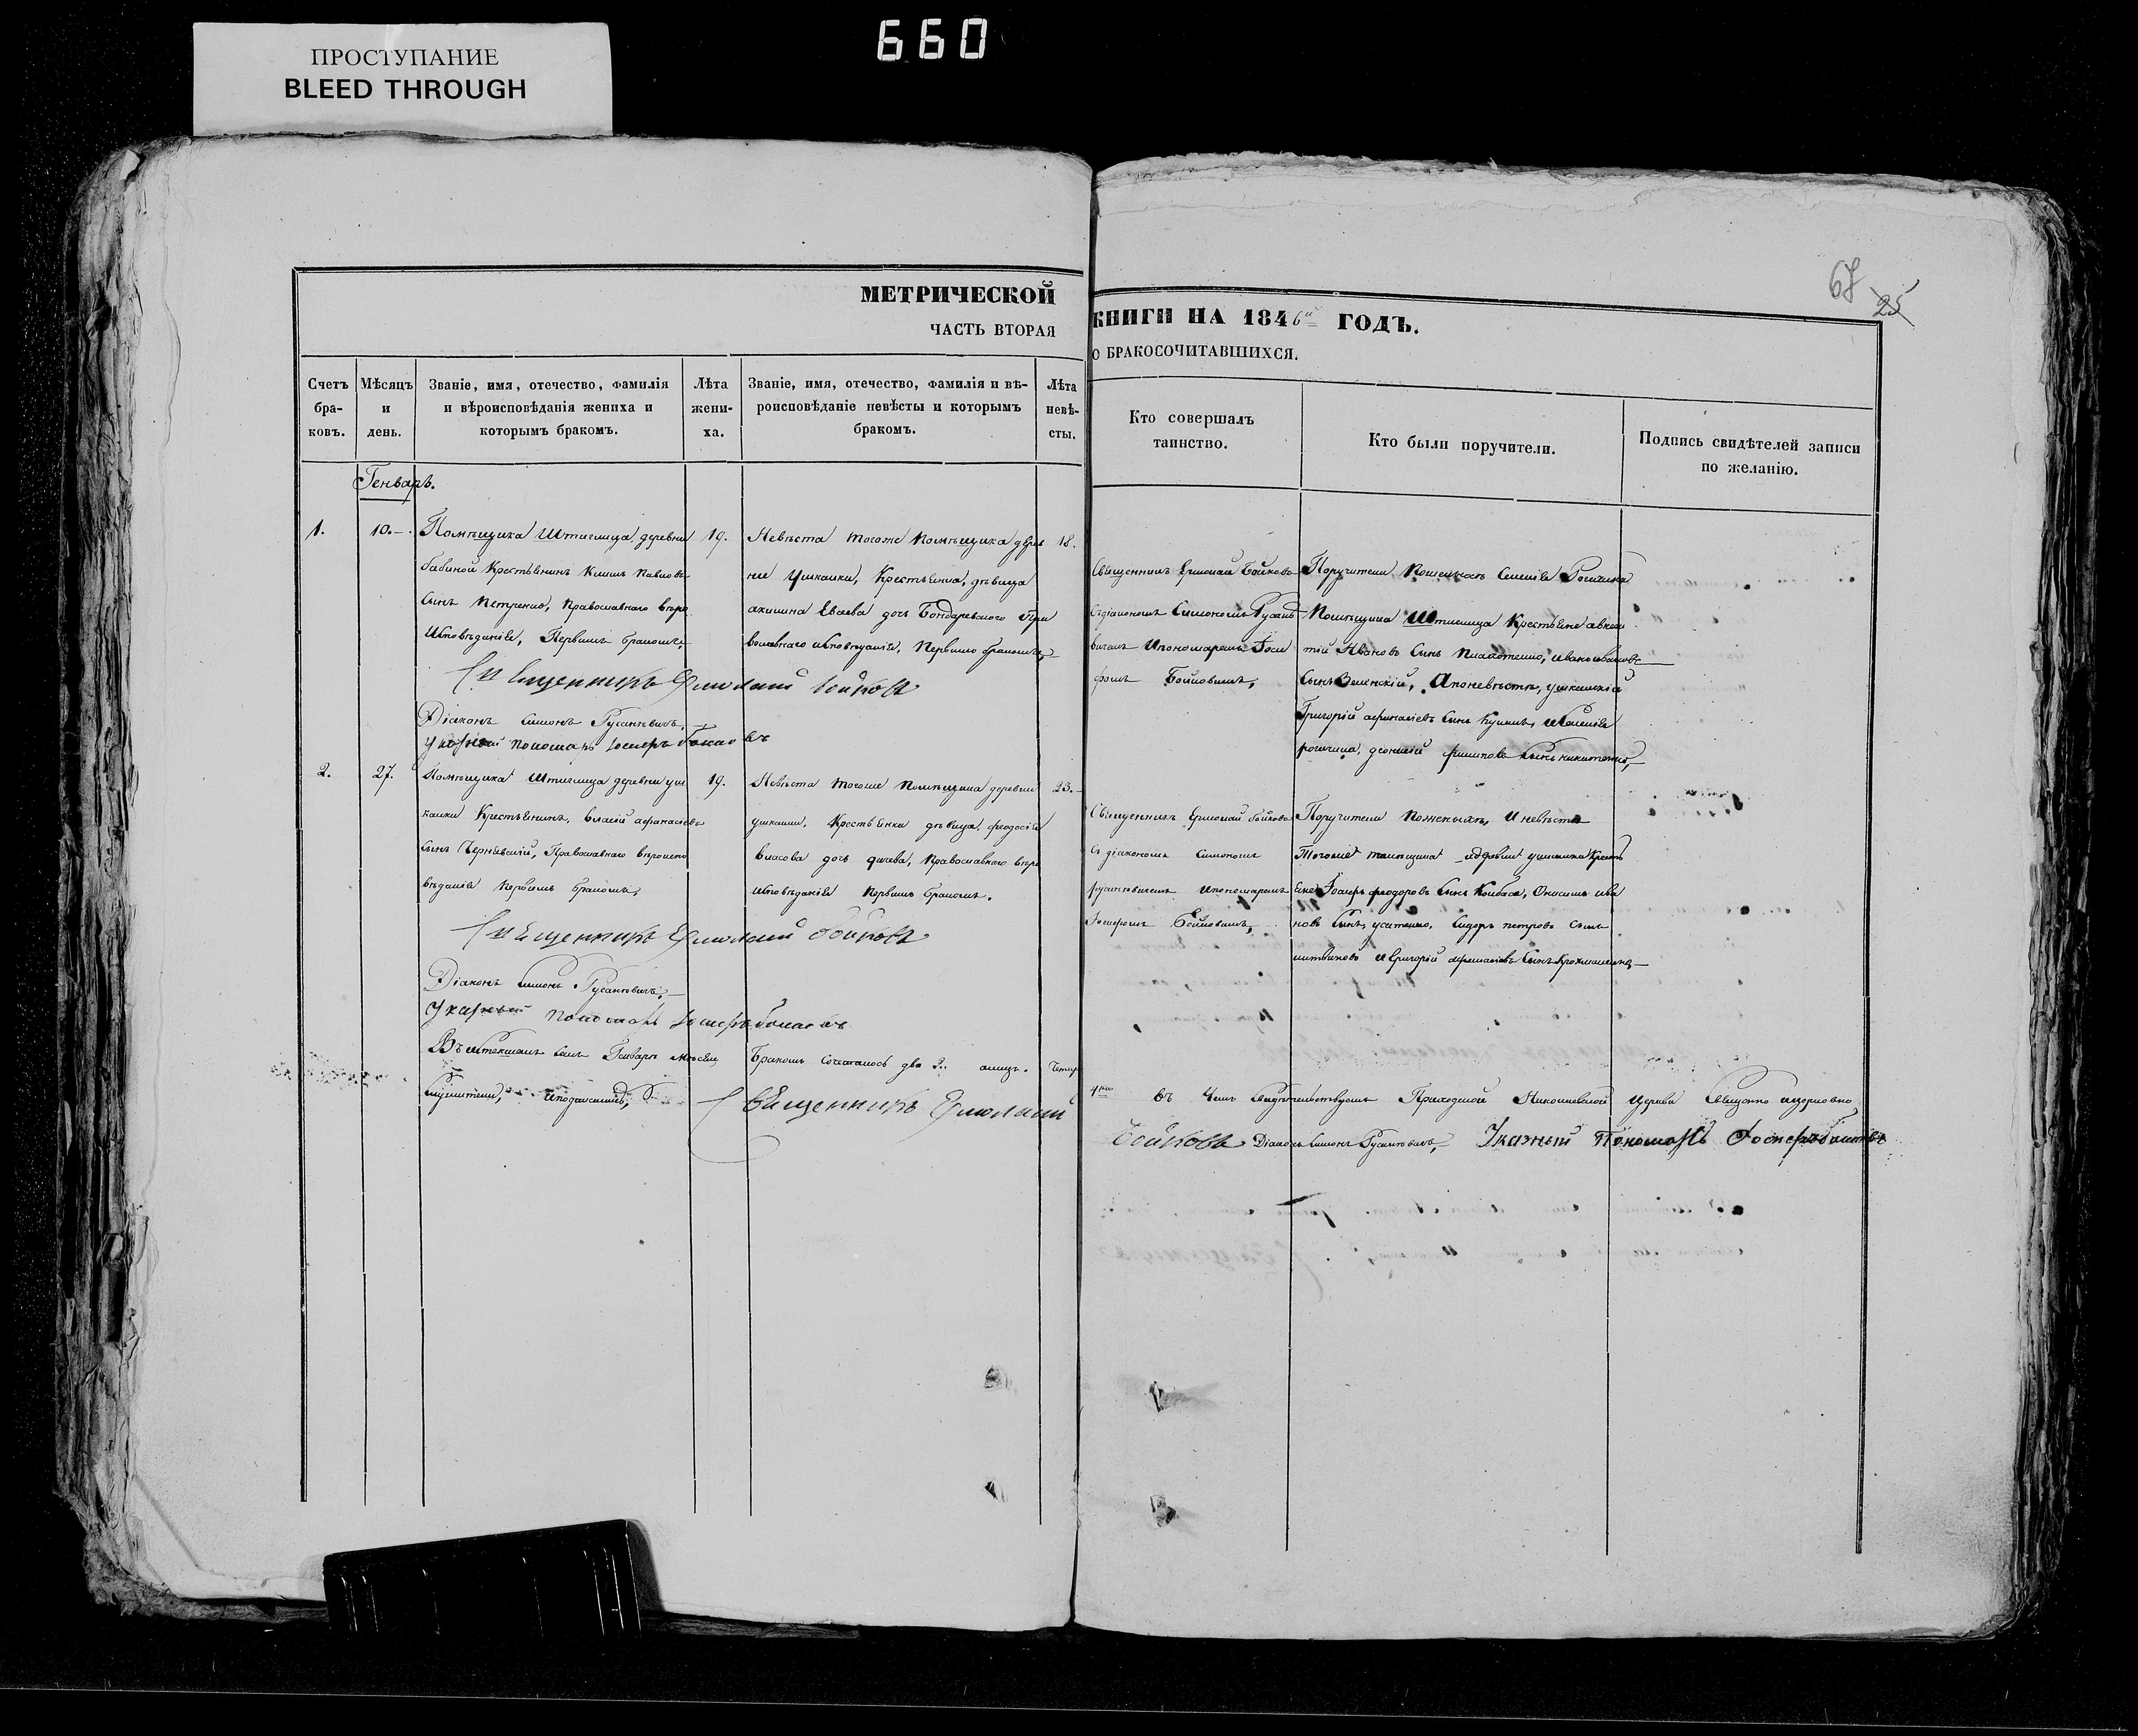 ПРОСТУПАНИЕ
BLEED THROUGH
660
67
25
МЕТРИЧЕСКОЙ
ЧАСТЬ ВТОРАЯ
КНИГИ НА 1846й ГОДЪ.
О БРАКОСОЧИТАВШИХСЯ.
Счетъ бра-
ковъ.
Мѣсяцъ
и
день.
Званіе, имя, отечество, фамилія
и вѣроисповѣданія жениха и
которымъ бракомъ.
Лѣта
жени-
ха.
Званіе, имя, отечество, фамилія и вѣ-
роисповѣданіе невѣсты и которымъ
бракомъ.
Лѣта
невѣ-
сты.
Кто совершалъ
таинство.
Кто были поручители.
Подпись свидѣтелей записи
по желанію.
Генварь.
1.
10.
Помѣщика Штиглица, деревни
бабиной Крестьянинъ Климъ Павловъ
сынъ Петренко, Православнаго вѣро
исповѣданія, Первымъ бракомъ,
19.
Невѣста тогоже помѣщика дерев
ни Ушкалки, Крестьянка, дѣвица
акилина Евсева дочь Бондаревского Пра
вославнаго исповѣданія, Первымъ бракомъ,
18.
Священникъ Ермолай Бойковъ
съ діакономъ Симономъ Русанѣ
вичемъ и пономаремъ Іоси
фомъ
Поручители по женихѣ селенія Рогачика
Помѣщика Штиглица Крестьяне
тій Ивановъ сынъ
сынъ Зеленскій, а по невѣстѣ,
Григорій афанасіевъ сынъ селенія
рогачика, филиповъ сынъ никитенко,
Священникъ Ермолай Бойковъ
Діаконъ Симонъ Русанѣвичъ,
Указный пономарь
2.
27.
Помѣщика Штиглица деревни уш
калки Крестьянинъ, власій афанасіевъ
сынъ Чернявскій, Православнаго вѣроиспо
вѣданія первымъ бракомъ,
19.
Невѣста тогоже помѣщика деревни
ушкалки, Крестьянка дѣвица, феодосія
власова дочь православнаго вѣро
исповѣданія первымъ бракомъ.
23.
Священникъ Ермолай Бойковъ
съ діакономъ Симономъ
русанѣвичемъ и пономаремъ
Іосифомъ
Поручители по женихѣ, и невѣстѣ
Тогоже помѣщика и деревни ушкалки Кресть
яне Іосифъ феодоровъ сынъ Колбаса, Онисимъ ива
новъ сынъ усатенко, Сидоръ петровъ сынъ
и Григорій афанасіевъ сынъ
Священникъ Ермолай Бойковъ
Діаконъ Симонъ Русанѣвичъ,
Указный пономарь
Въ истекшемъ семъ Генварѣ мѣсяцѣ,
Бракомъ сочеталось два 2. Четыре
4ре въ чемъ свидѣтельствуемъ Приходской Николаевской церкви Священно церковно
служители, и подписались,
Священникъ Ермолай
Бойковъ Діаконъ Симонъ Русанѣвичъ, Указный Пономарь